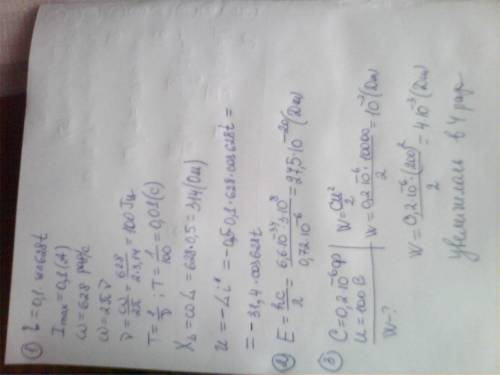 ① i = 0,1 · sin 628t
Imax = 0,1 (A)
ω = 628 рад/с
ω = 2πν
ν = ω/2π = 628/2·3,14 = 100 Гц
T = 1/ν; T = 1/100 = 0,01 (с)
X_L = ωL = 628 · 0,5 = 314 (Ом)
u = -Li' = -0,5 · 0,1 · 628 · cos 628t =
= -31,4 · cos 628t
② E = hc/λ = 6,6·10^-34·3·10^8/0,72·10^-6 = 27,5·10^-20 (Дж)
③ C = 0,2·10^-6 ф W = CU²/2
U = 100 В W = 0,2·10^-6·10000/2 = 10^-3 (Дж)
W - ?
W = 0,2·10^-6·(200)²/2 = 4·10^-3 (Дж)
увеличилась в 4 раза